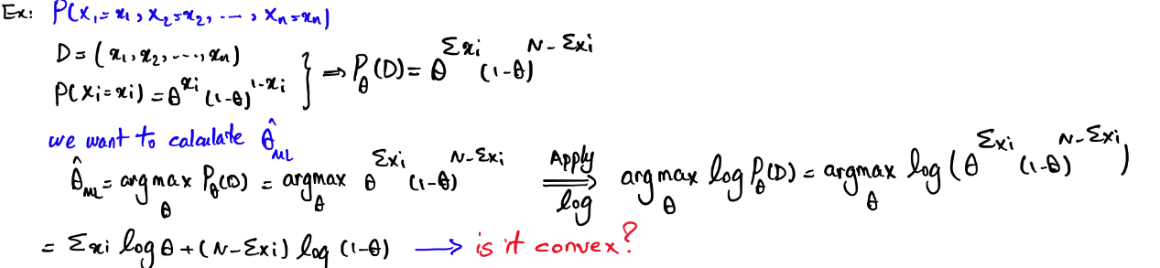 Ex: P(X₁=x₁, X₂=x₂, ..., Xn=xn)
D=(x₁, x₂, ..., xn)
P(Xi=xi)=θ^xi (1-θ)^1-xi } ⇒ P_θ(D)=θ^Σxi (1-θ)^N-Σxi
we want to calculate θ̂_ML
θ̂_ML = argmax_θ P_θ(D) = argmax_θ θ^Σxi (1-θ)^N-Σxi Apply log ⇒ argmax_θ log P_θ(D) = argmax_θ log(θ^Σxi (1-θ)^N-Σxi)
= Σxi log θ + (N-Σxi) log (1-θ) → is it convex?